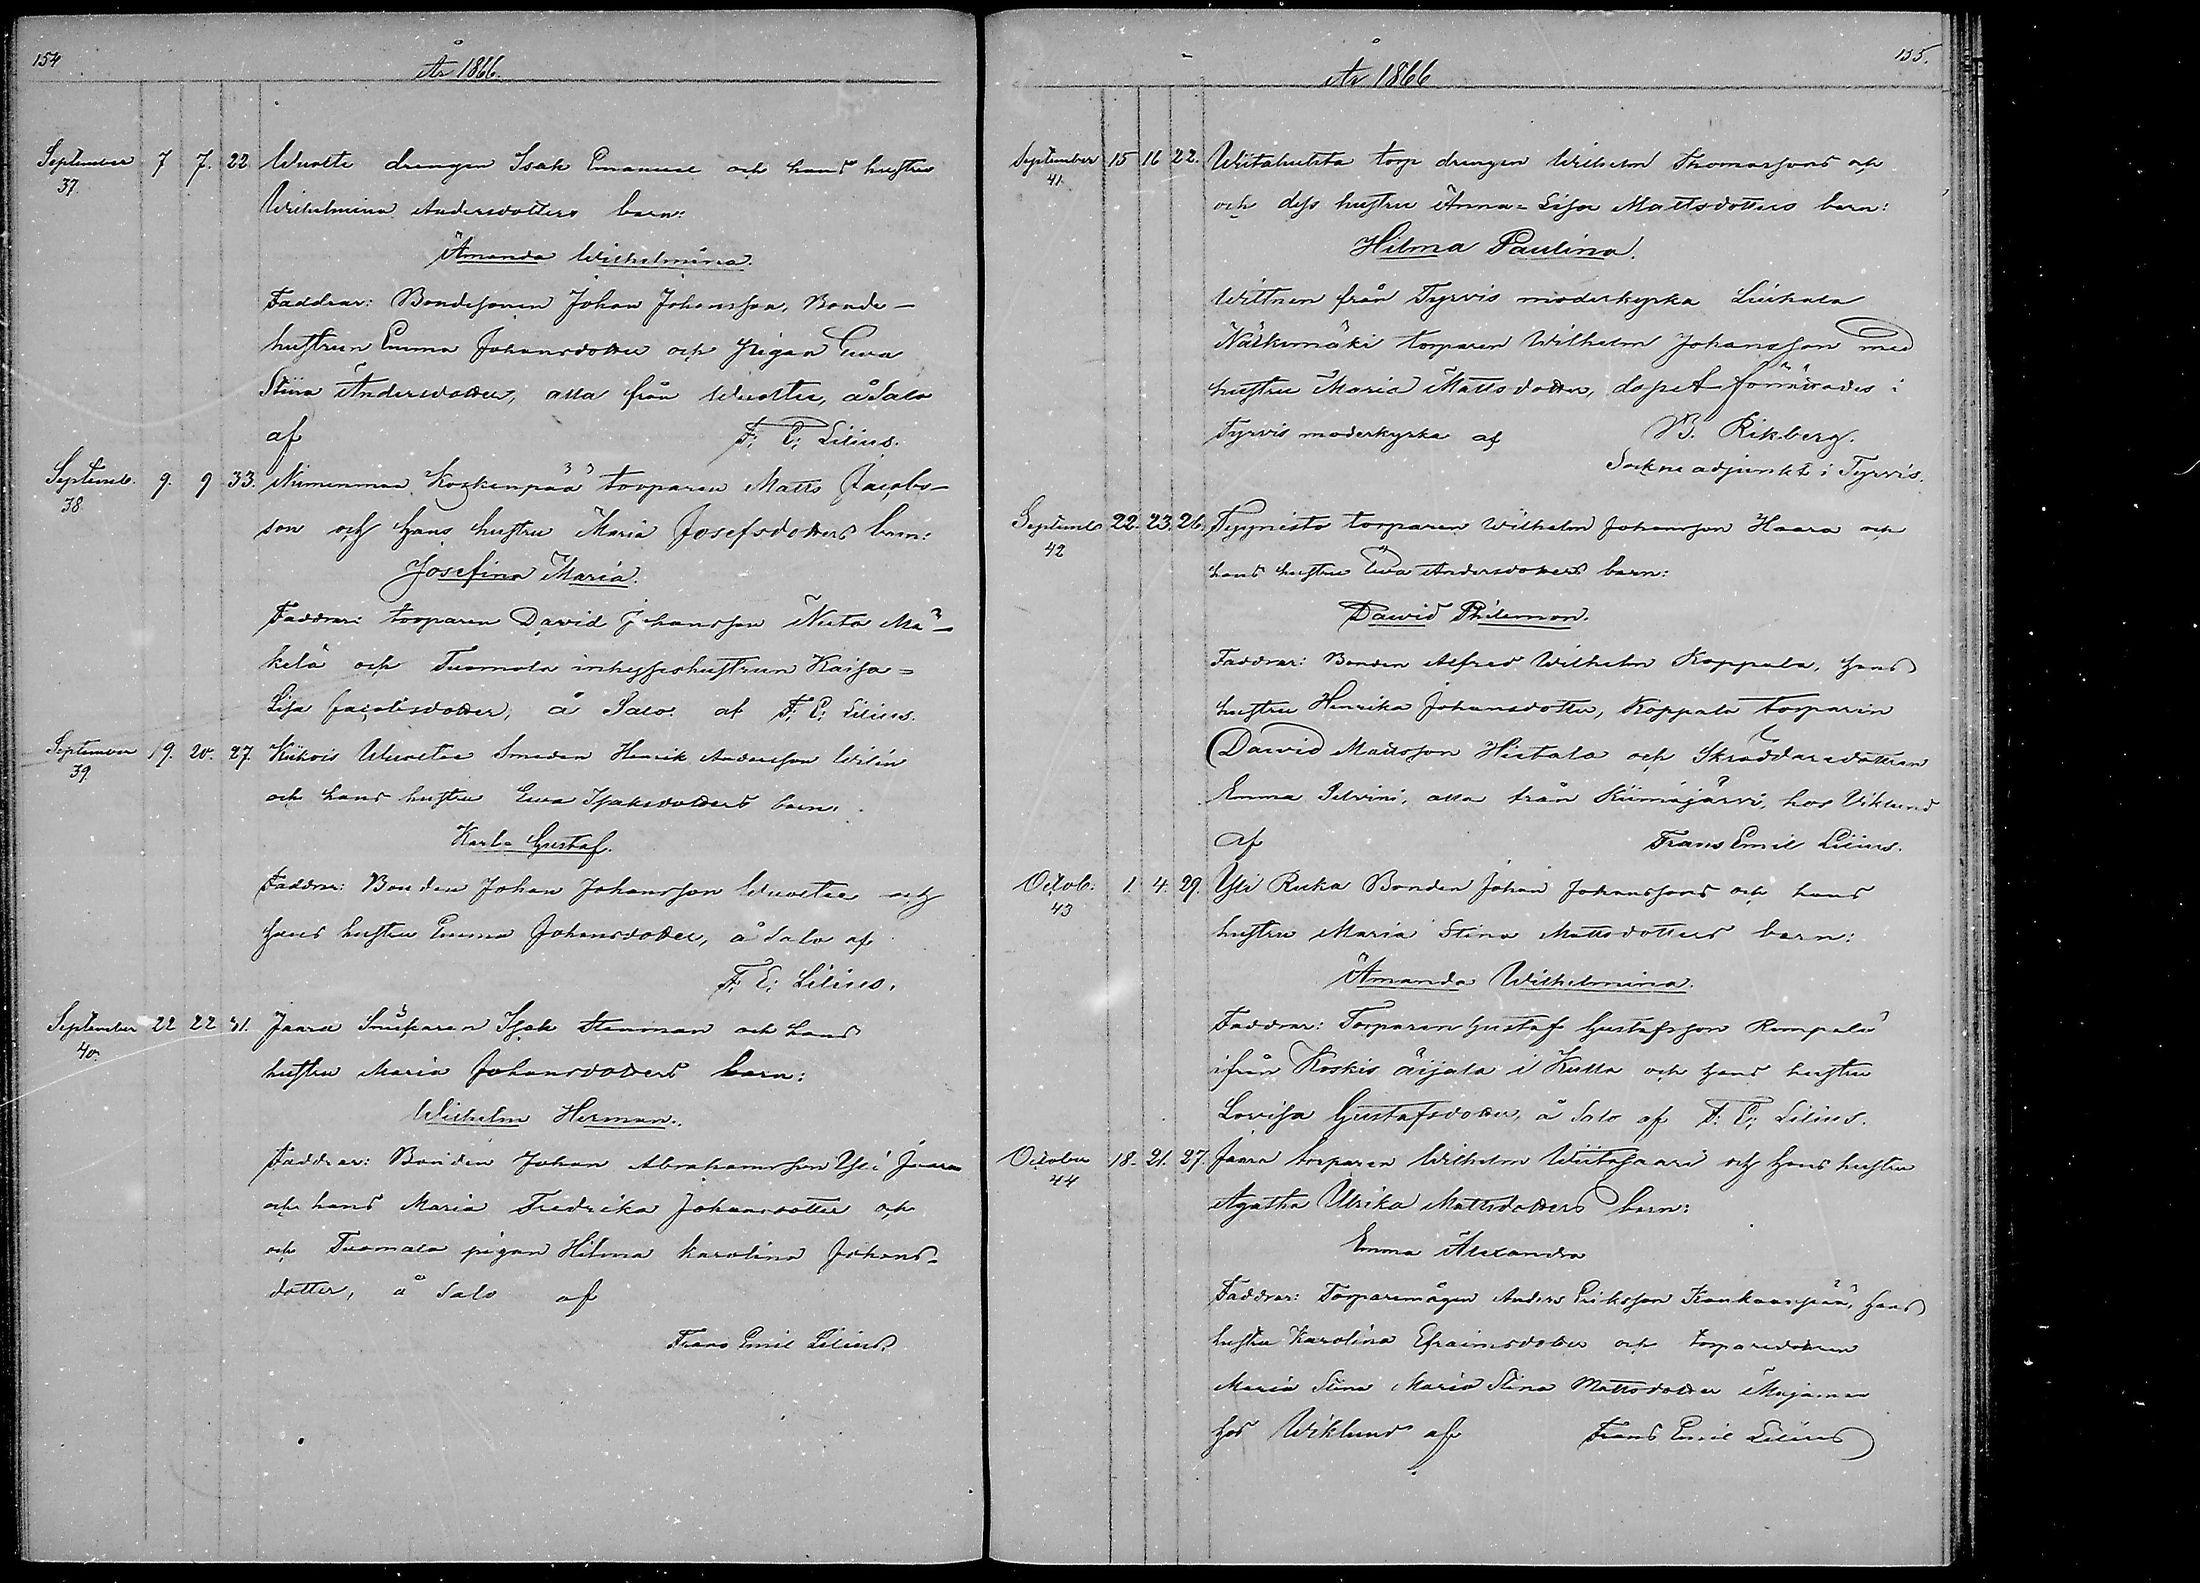 154
År 1866.
September 7 7. 22 Wuolte drengen Isak Emanuel och hans hustru
37. Wilhelmina Andersdotters barn:
Amanda Wilhelmina.
Faddrar: Bondesonen Johan Johansson, Bonde-
hustrun Emma Johansdotter och pigan Ewa
Stina Andersdotter, alla från Wuolte, å Salo
af F. E. Lilius.
Septemb. 9. 9 33. Nimenmaa Koskenpää torparen Matts Jacobs-
38. son och hans hustru Maria Josefsdotters barn:
Josefina Maria.
Faddrar: torparen David Johansson Mä-
kelä och Tuomola inhysfeshustrun Kaisa=
Lisa Jacobsdotter, å Salo. af F. E. Lilius.
September 19. 20. 27. Kiikois Wuoltee Smeden Henrik Andersson Wilén
39. och hans hustru Ewa Isaksdotters barn:
Karl Gustaf.
Faddrar: Bonden Johan Johansson Wuoltee och
hans hustru Emma Johansdotter, å Salo af
F. E. Lilius.
September 22 22 31. Jaara Snickaren Isak Stenman och hans
40. hustru Maria Johansdotters barn:
Wilhelm Herman.
Faddrar: Bonden Johan Abrahamsson Yli Jaara
och hans Maria Fredrika Johansdotter och
och Tuomala pigan Hilma Karolina Johans-
dotter, å Salo af
Frans Emil Lilius.
155.
År 1866
September 15 16 22. Wiitahulsta torp drengen Wilhelm Thomassons och
41. och dess hustru Anna-Lisa Mattsdotters barn:
Hilma Paulina.
Wittnen från Tyrvis moderkyrka Liukala
Näkumäki torparen Wilhelm Johansson med
hustru Maria Mattsdotter, dopet förrättades i
Tyrvis moderkyrka af B. Rikberg.
Sockneadjunkt i Tyrvis.
Septemb 22. 23. 26. torparen Wilhelm Johansson Haara och
42 hans hustru Ewa Andersdotters barn:
Dawid Philemon.
Faddrar: Bonden Alfred Wilhelm Koppala, hans
hustru Henrika Johansdotter, Koppala torparen
Dawid Mattsson Hietala och Skräddaredottren
Emma Selvini, alla från Kiimajärvi, hos Viklund
af Frans Emil Lilius.
Octob. 1. 4. 29. Yli Ruka Bonden Johan Johanssons och hans
43 hustru Maria Stina Mattsdotters barn:
Amanda Wilhelmina.
Faddrar: Torparen Gustaf Gustafsson Rompala
ifrån Koskis äijala i Kulla och hans hustru
Lovisa Gustafsdotter, å Salo af F. E. Lilius.
October 18. 21. 27 Jaara torparen Wilhelm Wiitasaari och hans hustru
44 Agatha Ulrika Mattsdotters barn:
Emma Alexandra
Faddrar: Torparemågen Anders Eriksson Kankaanpää, hans
hustru Karolina Efraimsdotter och torparedottren
Maria Stina Maria Stina Mattsdotter Majamaa
hos Wiklund af Frans Emil Lilius